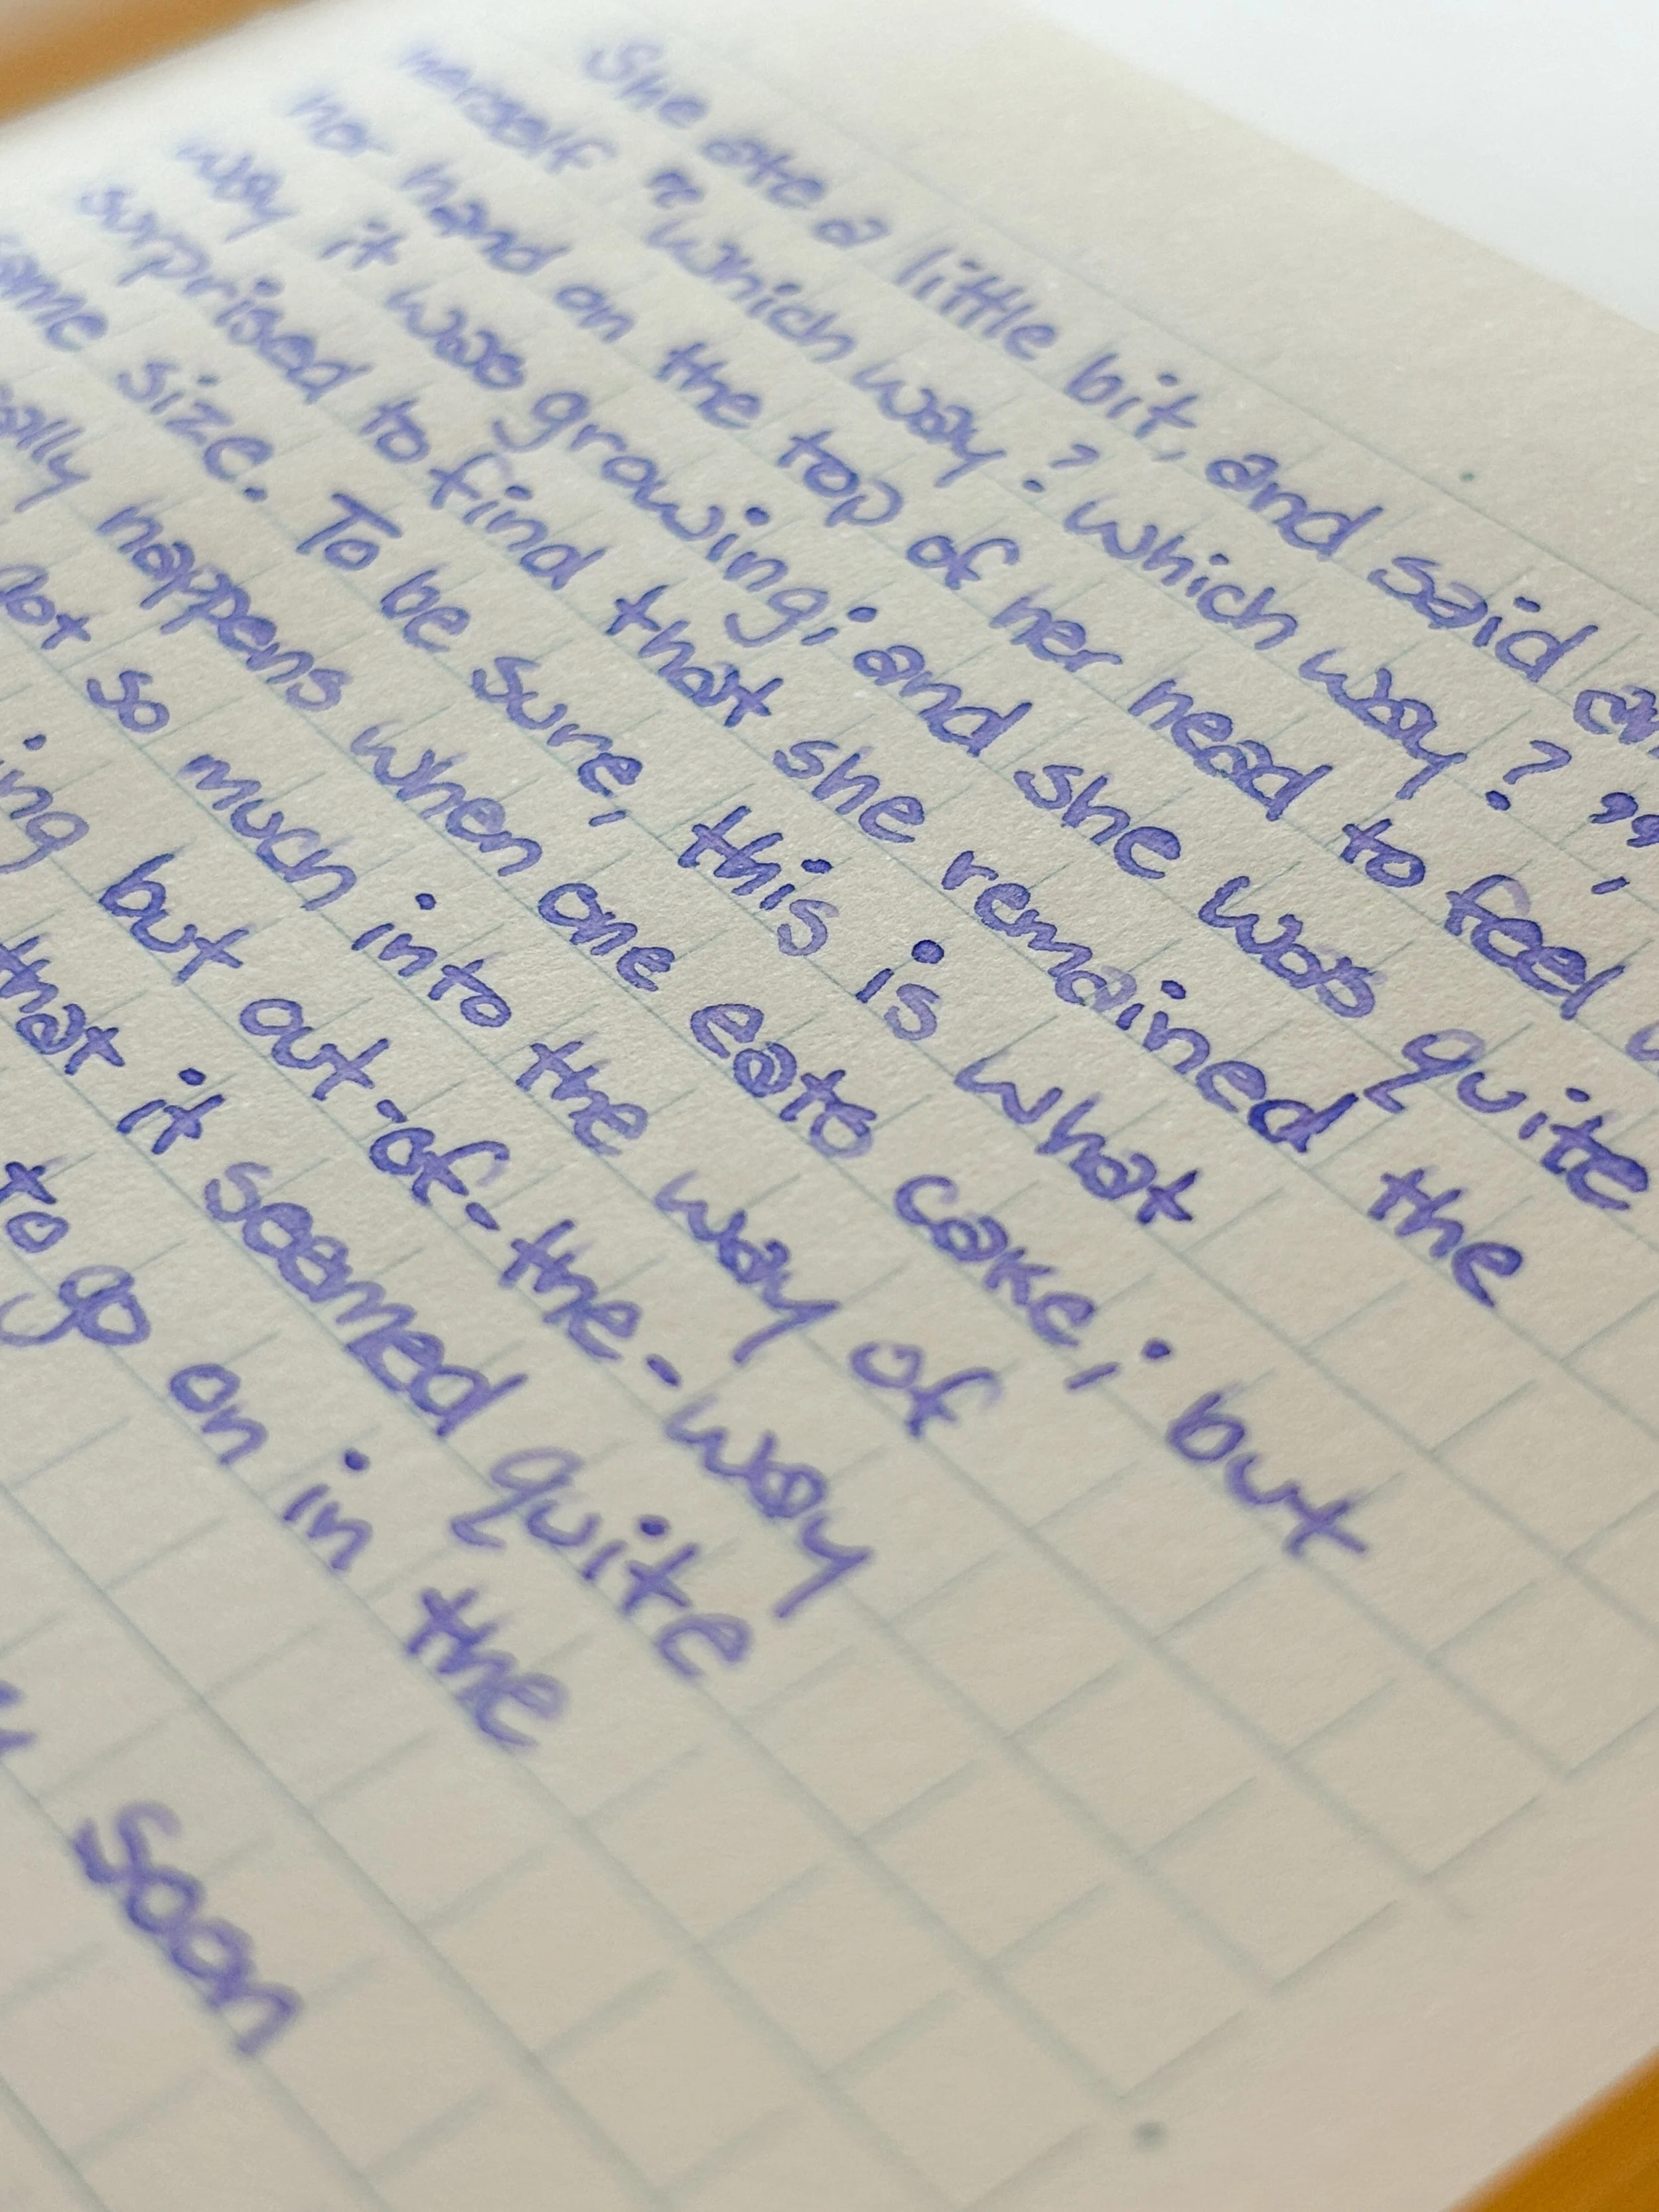 She ate a little bit, and said
herself "which way? which way?",
her hand on the top of her head to feel
way it was growing; and she was quite
surprised to find that she remained the
size. To be sure, this is what
happens when one eats cake; but
so much into the way of
but out-of-the-way
that it seemed quite
to go on in the
soon